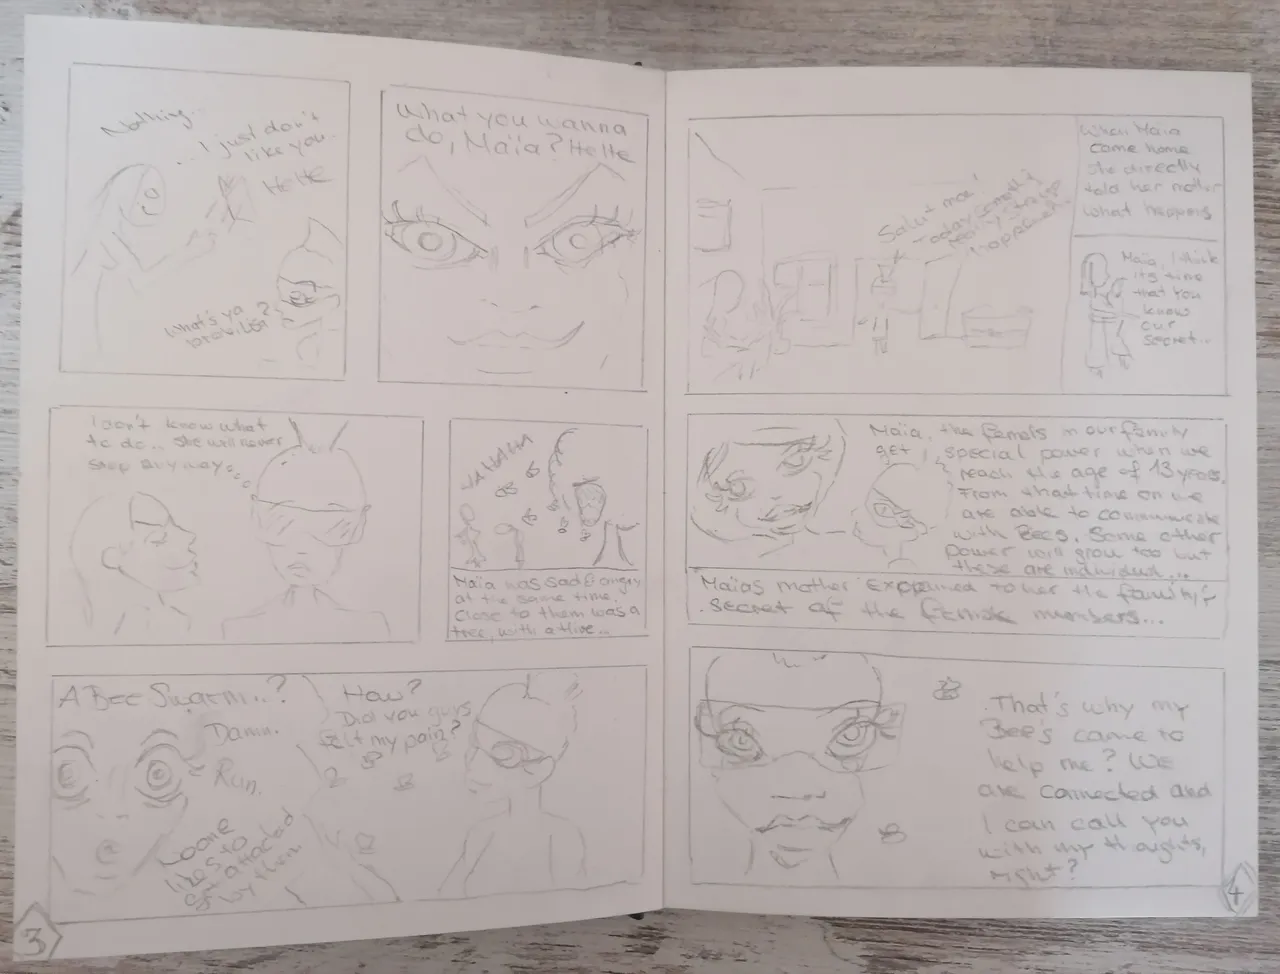 Nothing...
... I just don't
like you..
HeHe
What's ya
What you wanna
do, Maïa? HeHe
I don't know what
to do... she will never
stop anyway...
HAHAHA
Maïa was sad & angry
at the same time.
Close to them was a
tree, with a Hive...
A Bee Swarm..?
Damn.
Run.
Noone
likes to
get attacked
by them.
How?
Did you guys
felt my pain?
3
Salut mae!
Today something
really strange
happened.
When Maïa
came home
she directly
told her mother
what happens
Maïa, I think
its time
that you
know
our
secret...
Maïa, the femals in our family
get special power when we
reach the age of 13 years.
From that time on we
are able to communicate
with Bees. Some other
power will grow too but
these are individual...
Maïas mother explained to her the family
secret of the female members...
That's why my
Bee's came to
help me? We
are connected and
I can call you
with my thoughts,
right?
4